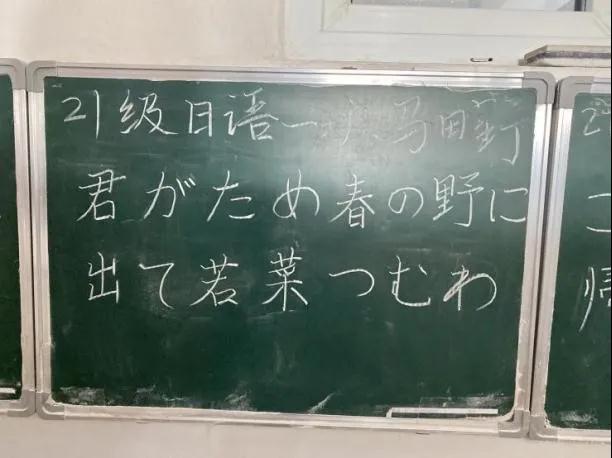 21级日语一
君がため春の野に
出て若菜つむわ
2
帰